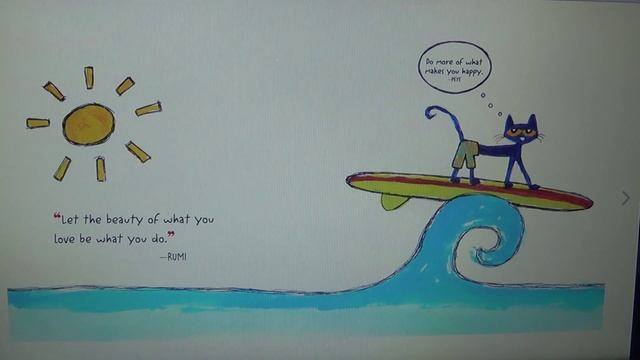 Do more of what
makes you happy.
-PETE
"Let the beauty of what you
love be what you do."
—RUMI